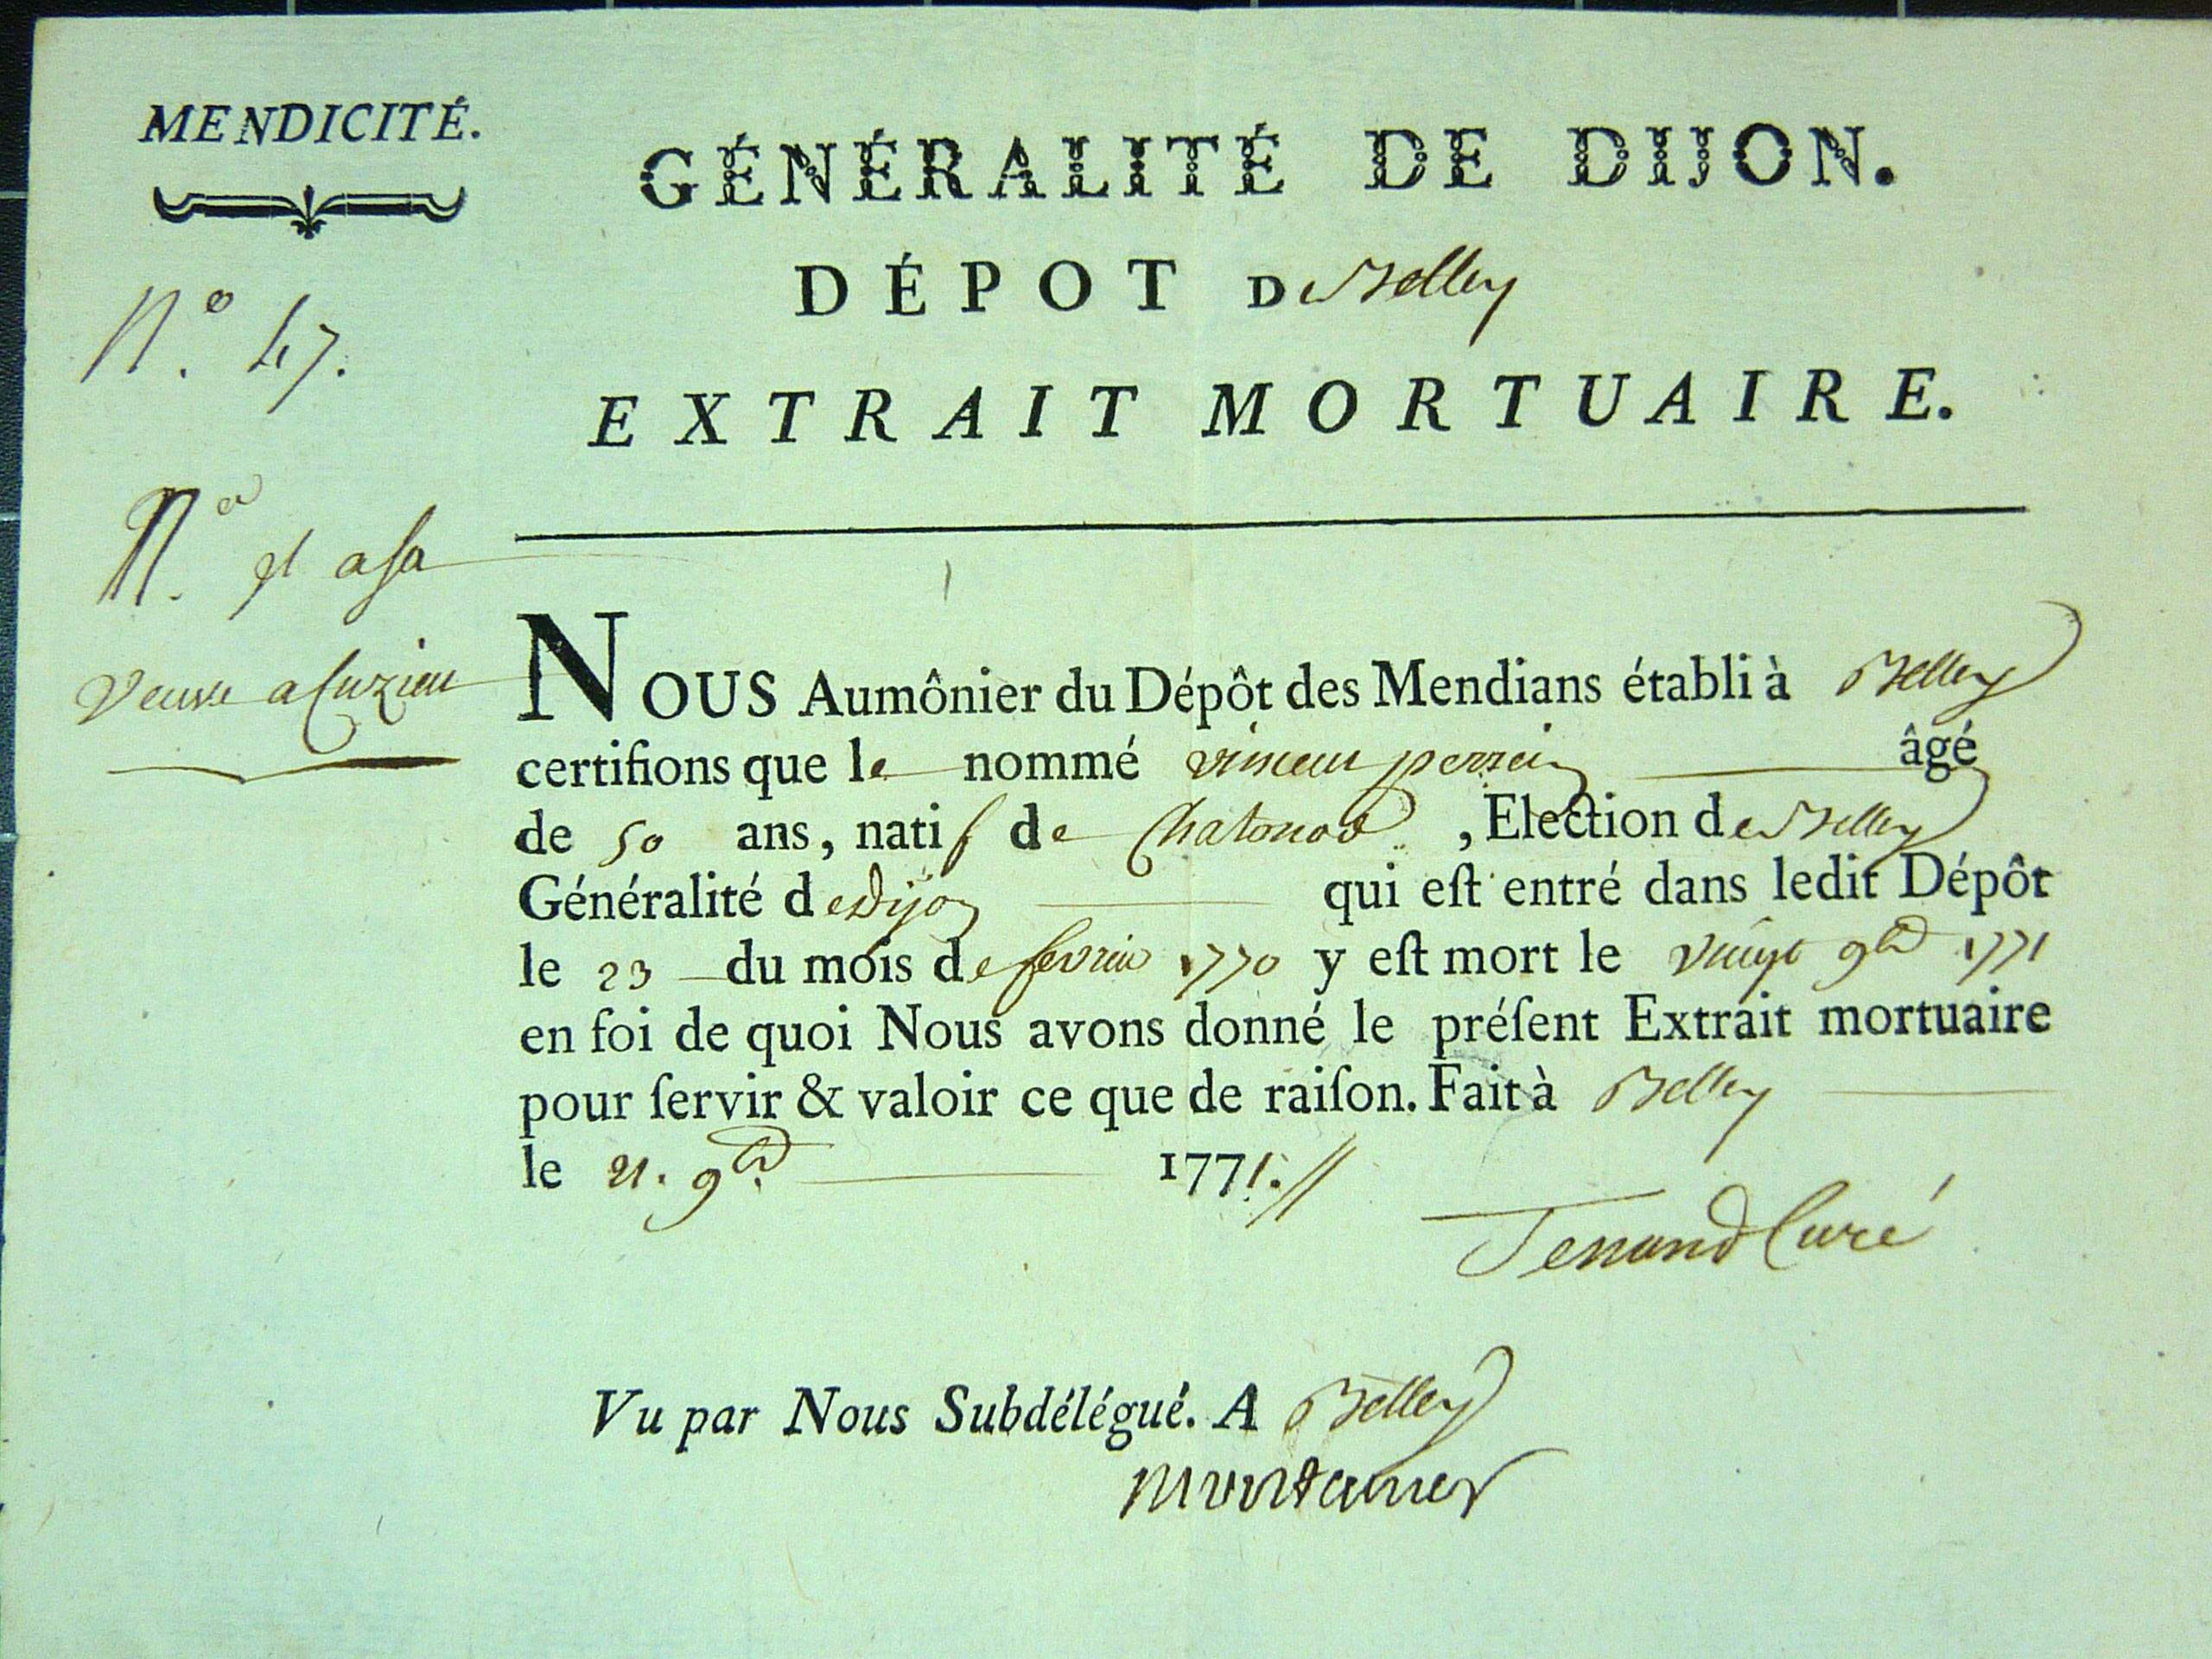 MENDICITÉ.
GÉNÉRALITÉ DE DIJON.
DÉPOT De Belley
N.º 47.
EXTRAIT MORTUAIRE.
N.ª il a sa
veuve a Cuzieu
NOUS Aumônier du Dépôt des Mendians établi à Belley
certifions que le nommé vincent perrein âgé
de 50 ans, natif de Chatonod, Election de Belley
Généralité de Dijon qui eſt entré dans ledit Dépôt
le 23 du mois de fevrier 1770 y eſt mort le vingt 9bre 1771
en foi de quoi Nous avons donné le préſent Extrait mortuaire
pour ſervir & valoir ce que de raiſon. Fait à Belley
le 21. 9bre 1771.//
Tenand Curé
Vu par Nous Subdélégué. A Belley